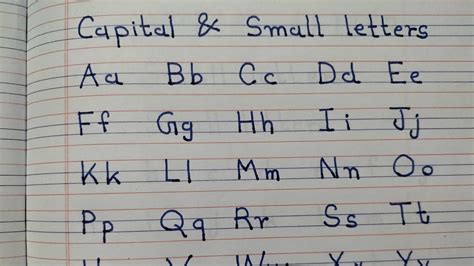 Capital & Small letters
Aa Bb Cc Dd Ee
Ff Gg Hh Ii Jj
Kk Ll Mm Nn Oo
Pp Qq Rr Ss Tt